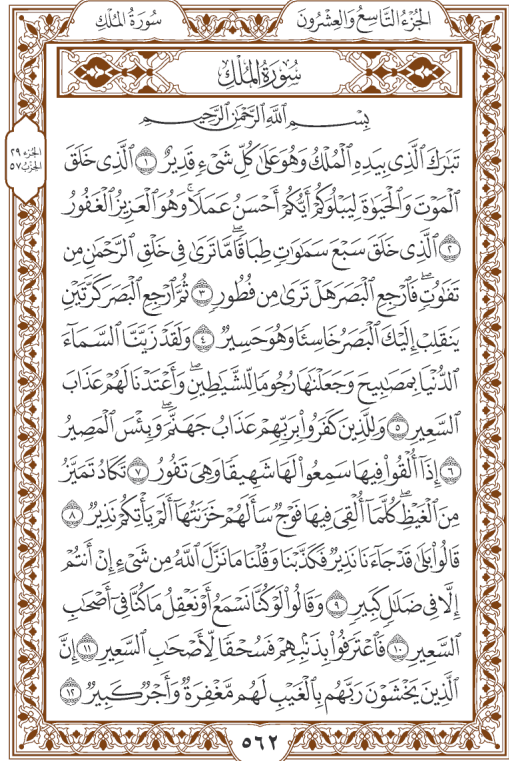 سُورَةُ المُلْكِ
الجُزْءُ التَّاسِعُ وَالعِشْرُونَ
سُورَةُ المُلْكِ
بِسْمِ ٱللَّهِ ٱلرَّحْمَٰنِ ٱلرَّحِيمِ
الجزء ٢٩
الحزب ٥٧
تَبَٰرَكَ ٱلَّذِي بِيَدِهِ ٱلْمُلْكُ وَهُوَ عَلَىٰ كُلِّ شَىْءٍ قَدِيرٌ ١ ٱلَّذِي خَلَقَ
ٱلْمَوْتَ وَٱلْحَيَوٰةَ لِيَبْلُوَكُمْ أَيُّكُمْ أَحْسَنُ عَمَلًا ۚ وَهُوَ ٱلْعَزِيزُ ٱلْغَفُورُ
٢ ٱلَّذِي خَلَقَ سَبْعَ سَمَٰوَٰتٍ طِبَاقًا ۖ مَّا تَرَىٰ فِي خَلْقِ ٱلرَّحْمَٰنِ مِن
تَفَٰوُتٍ ۖ فَٱرْجِعِ ٱلْبَصَرَ هَلْ تَرَىٰ مِن فُطُورٍ ٣ ثُمَّ ٱرْجِعِ ٱلْبَصَرَ كَرَّتَيْنِ
يَنقَلِبْ إِلَيْكَ ٱلْبَصَرُ خَاسِئًا وَهُوَ حَسِيرٌ ٤ وَلَقَدْ زَيَّنَّا ٱلسَّمَآءَ
ٱلدُّنْيَا بِمَصَٰبِيحَ وَجَعَلْنَٰهَا رُجُومًا لِّلشَّيَٰطِينِ ۖ وَأَعْتَدْنَا لَهُمْ عَذَابَ
ٱلسَّعِيرِ ٥ وَلِلَّذِينَ كَفَرُوا۟ بِرَبِّهِمْ عَذَابُ جَهَنَّمَ ۖ وَبِئْسَ ٱلْمَصِيرُ
٦ إِذَآ أُلْقُوا۟ فِيهَا سَمِعُوا۟ لَهَا شَهِيقًا وَهِىَ تَفُورُ ٧ تَكَادُ تَمَيَّزُ
مِنَ ٱلْغَيْظِ ۖ كُلَّمَآ أُلْقِىَ فِيهَا فَوْجٌ سَأَلَهُمْ خَزَنَتُهَآ أَلَمْ يَأْتِكُمْ نَذِيرٌ ٨
قَالُوا۟ بَلَىٰ قَدْ جَآءَنَا نَذِيرٌ فَكَذَّبْنَا وَقُلْنَا مَا نَزَّلَ ٱللَّهُ مِن شَىْءٍ إِنْ أَنتُمْ
إِلَّا فِي ضَلَٰلٍ كَبِيرٍ ٩ وَقَالُوا۟ لَوْ كُنَّا نَسْمَعُ أَوْ نَعْقِلُ مَا كُنَّا فِىٓ أَصْحَٰبِ
ٱلسَّعِيرِ ١٠ فَٱعْتَرَفُوا۟ بِذَنۢبِهِمْ فَسُحْقًا لِّأَصْحَٰبِ ٱلسَّعِيرِ ١١ إِنَّ
ٱلَّذِينَ يَخْشَوْنَ رَبَّهُم بِٱلْغَيْبِ لَهُم مَّغْفِرَةٌ وَأَجْرٌ كَبِيرٌ ١٢
٥٦٢